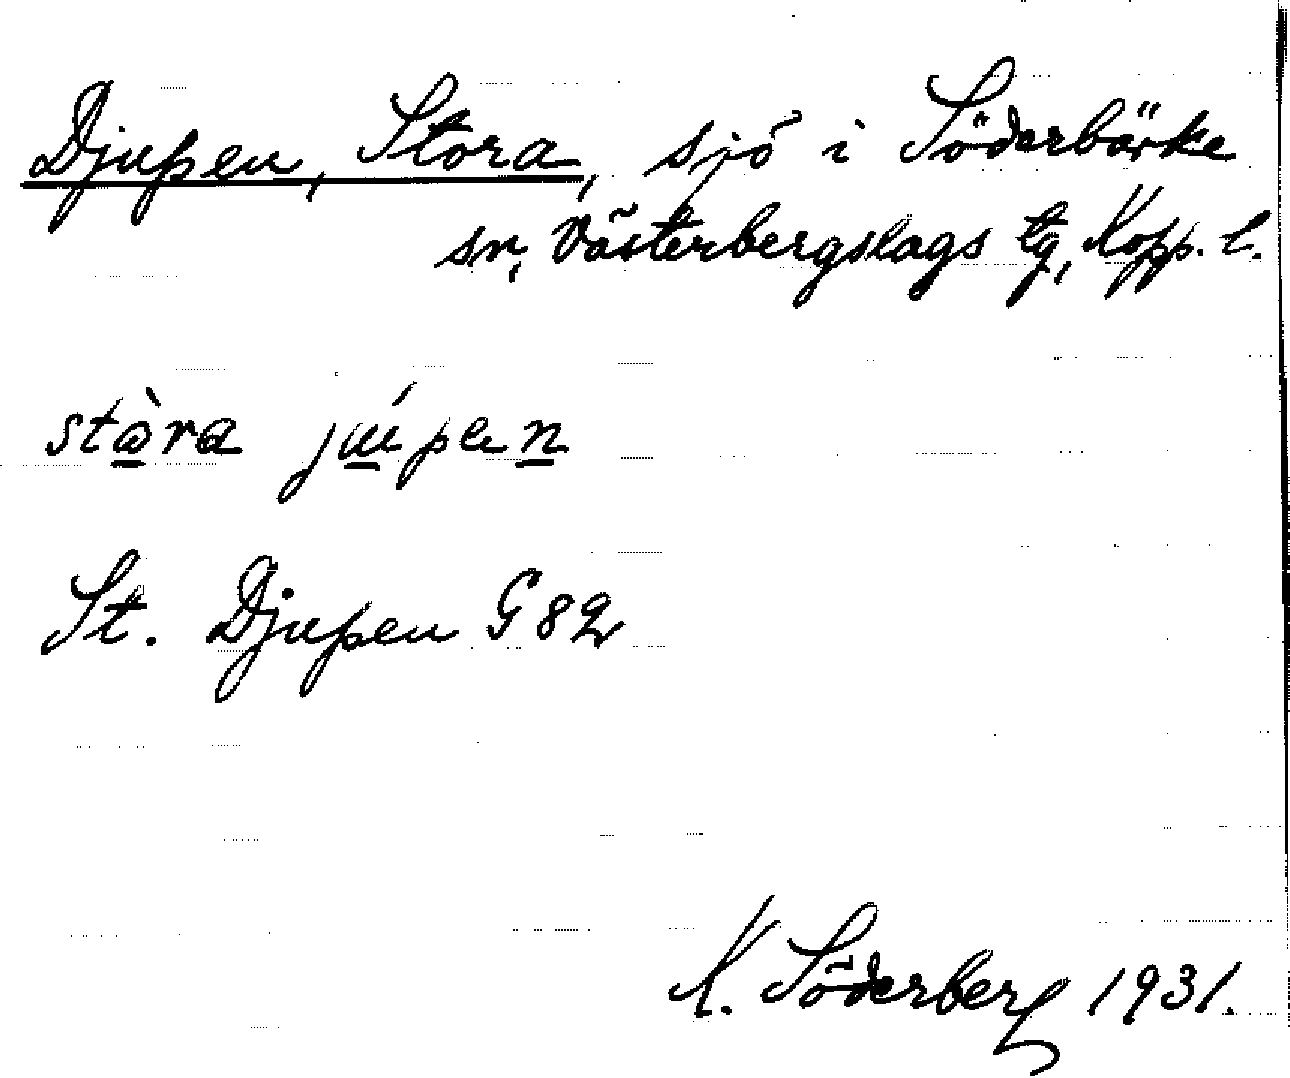 Djupen, Stora, sjö i Söderbärke
sn, Västerbergslags tg, Kopp. l.
stɷ̀ra jɯ́pen
St. Djupen G 82
K. Söderberg 1931.